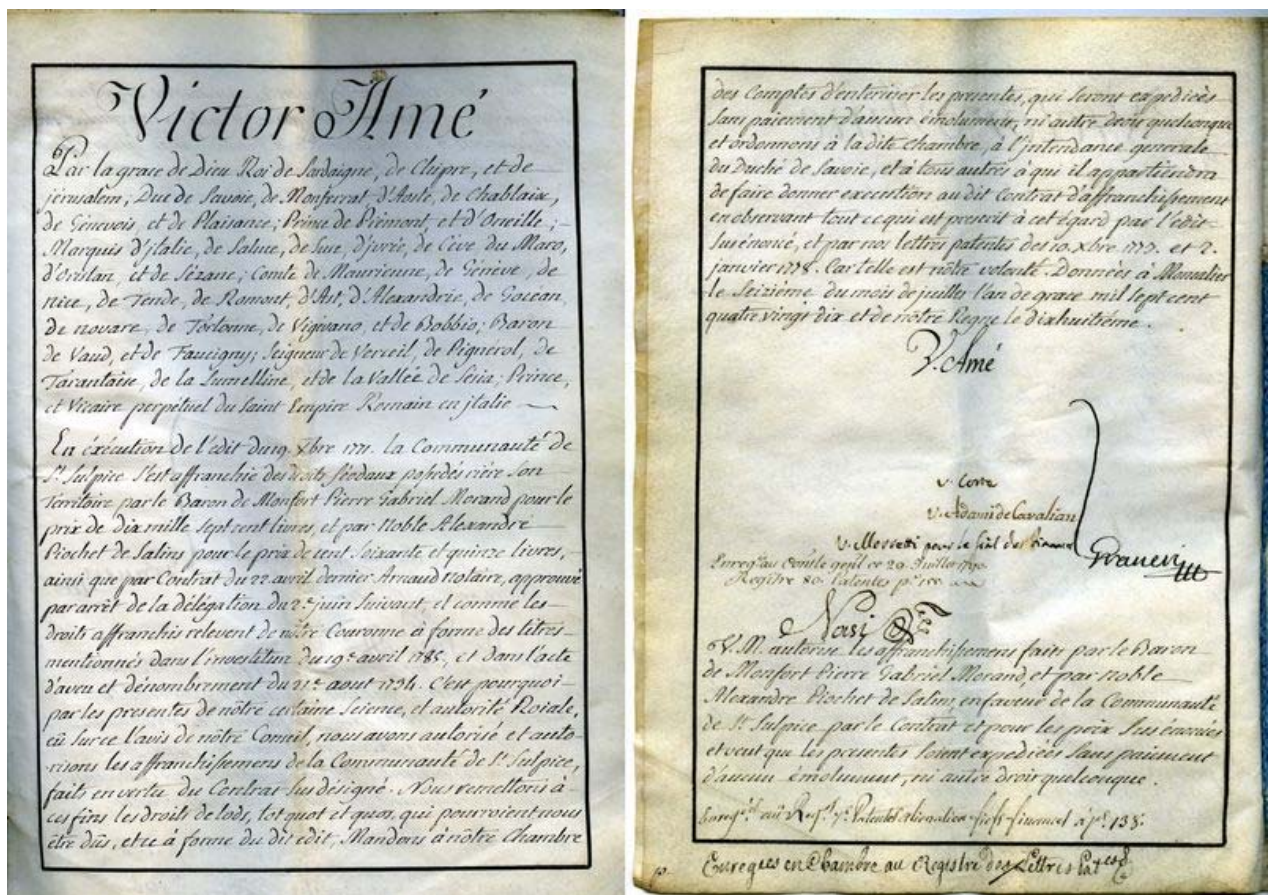 Victor Amé
Par la grace de Dieu Roi de Sardaigne, de Chipre, et de
jérusalem; Duc de Savoie, de Monferrat, d'Aoste, de Chablaix,
de Génevois, et de Plaisance; Prince de Piémont, et d'Oneille;
Marquis d'jtalie, de Saluce, de Suse, d'jvrée, de Cève, du Maro,
d'Oristan, et de Sézane; Comte de Maurienne, de Généve, de
nice, de Tende, de Romont, d'Ast, d'Alexandrie, de Gocéan,
de novare, de Tortonne, de Vigevano, et de Bobbio; Baron
de Vaud, et de Faucigny; Seigneur de Verceil, de Pignerol, de
Tarantaise, de la Lumelline, et de la Vallée de Sésia; Prince,
et Vicaire perpétuel du Saint Empire Romain en jtalie
En éxécution de l'édit du 19. Xbre 1771. la Communauté de
St. Sulpice s'est affranchie des droits féodaux possedés rière son
Territoire par le Baron de Monfort Pierre Gabriel Morand pour le
prix de dix mille sept cent livres, et par Noble Alexandre
Piochet de Salins pour le prix de cent soixante et quinze livres,
ainsi que par Contrat du 22. avril dernier Arnaud notaire, approuvé
par arrêt de la délégation du 2e juin suivant, et comme les
droits affranchis relevent de nôtre Couronne à forme des titres
mentionnés dans l'investiture du 19e avril 1785, et dans l'acte
d'aveu et dénombrement du 21e aout 1734. C'est pourquoi
par les presentes de nôtre certaine science, et autorité Roiale,
eû sur ce l'avis de nôtre Conseil, nous avons autorisé et auto-
risons les affranchissemens de la Communauté de St. Sulpice,
faits en vertu du Contrat sus désigné. Nous remettons à
ces fins les droits de lods, tot quot et quos, qui pourroient nous
être dûs, et ce à forme du dit édit, Mandons à nôtre Chambre
des Comptes d'enteriner les presentes, qui seront expediées
sans paiement d'aucun émolument, ni autre droit quelconque
et ordonnons à la dite Chambre, à l'intendance generale
du Duché de Savoie, et à tous autres à qui il appartiendra
de faire donner execution au dit Contrat d'affranchissement
en observant tout ce qui est prescrit à cet égard par l'edit
sus énoncé, et par nos lettres patentes des 10. Xbre 1777. et 2.
janvier 1778. Car telle est nôtre volonté. Données à Moncalier
le Seizième du mois de juillet l'an de grace mil sept cent
quatre vingt dix et de nôtre Regne le dixhuitième.
V. Amé
V. Corte
V. Adami de Cavalian
V. Mossetti pour le
Graneri
29. Juillet 1790.
Registre 80. Patentes
V. M. autorise les affranchissemens faits par le Baron
de Monfort Pierre Gabriel Morand, et par Noble
Alexandre Piochet de Salins en faveur de la Communauté
de St. Sulpice par le Contrat et pour les prix sus énoncés
et veut que les presentes soient expediées sans paiement
d'aucun émolument, ni autre droit quelconque.
à pe. 138.
en Chambre au Registre des Lettres